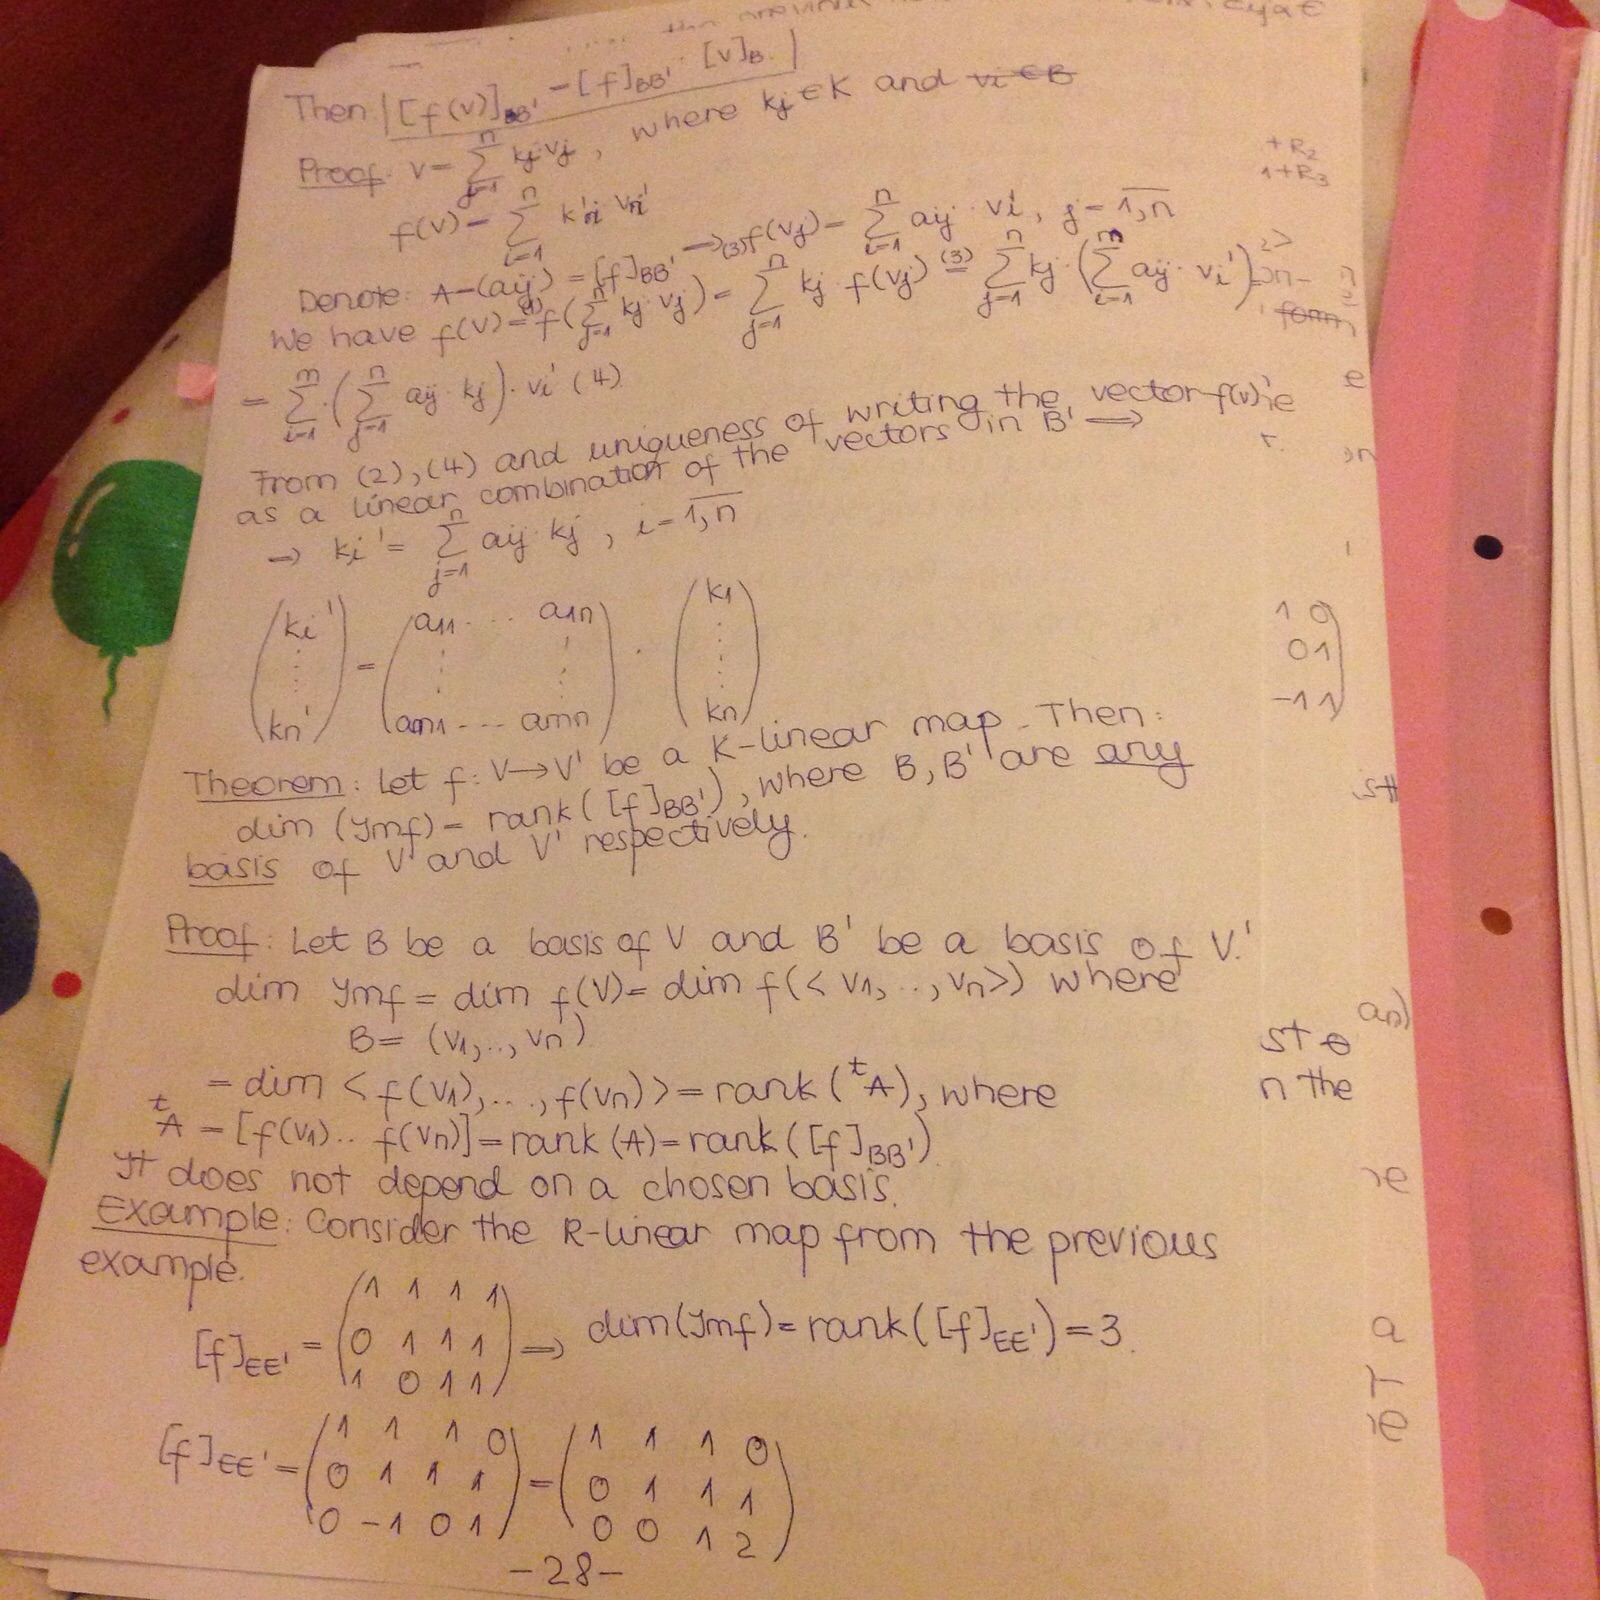 Then [f(v)]B' = [f]BB' · [v]B.
Proof: v = ∑_{j=1}^{n} kj·vj , where kj ∈ K and vi ∈ B
f(v) = ∑_{i=1}^{n} k'i v'i
Denote: A = (aij) = [f]BB' → (3) f(vj) = ∑_{i=1}^{n} aij · vi', j = 1,n
We have f(v) =(1) f(∑_{j=1}^{n} kj·vj) = ∑_{j=1}^{n} kj · f(vj) =(3) ∑_{j=1}^{n} kj · (∑_{i=1}^{m} aij · vi')
= ∑_{i=1}^{m} · (∑_{j=1}^{n} aij · kj) · vi' (4)
From (2), (4) and uniqueness of writing the vector f(v)
as a linear combination of the vectors in B' ⟹
→ ki' = ∑_{j=1}^{n} aij · kj , i = 1,n
(ki' ⋮ kn') = (a11 ... a1n ⋮ ⋮ am1 ... amn) · (k1 ⋮ kn)
Theorem: Let f: V → V' be a K-linear map. Then:
dim (Ymf) = rank ([f]BB'), where B, B' are any
basis of V and V' respectively.
Proof: Let B be a basis of V and B' be a basis of V'.
dim Ymf = dim f(V) = dim f(< v1, .., vn >) where
B = (v1, .., vn)
= dim < f(v1), ..., f(vn) > = rank (tA), where
tA = [f(v1) .. f(vn)] = rank (A) = rank ([f]BB')
Yt does not depend on a chosen basis.
Example: Consider the R-linear map from the previous
example.
[f]EE' = (1 1 1 1
0 1 1 1
1 0 1 1) ⟹ dim (Ymf) = rank ([f]EE') = 3.
[f]EE' = (1 1 1 0
0 1 1 1
0 -1 0 1) = (1 1 1 0
0 1 1 1
0 0 1 2)
-28-
+R2
1+R3
form
1 0
0 1
-1 1
an)
n the